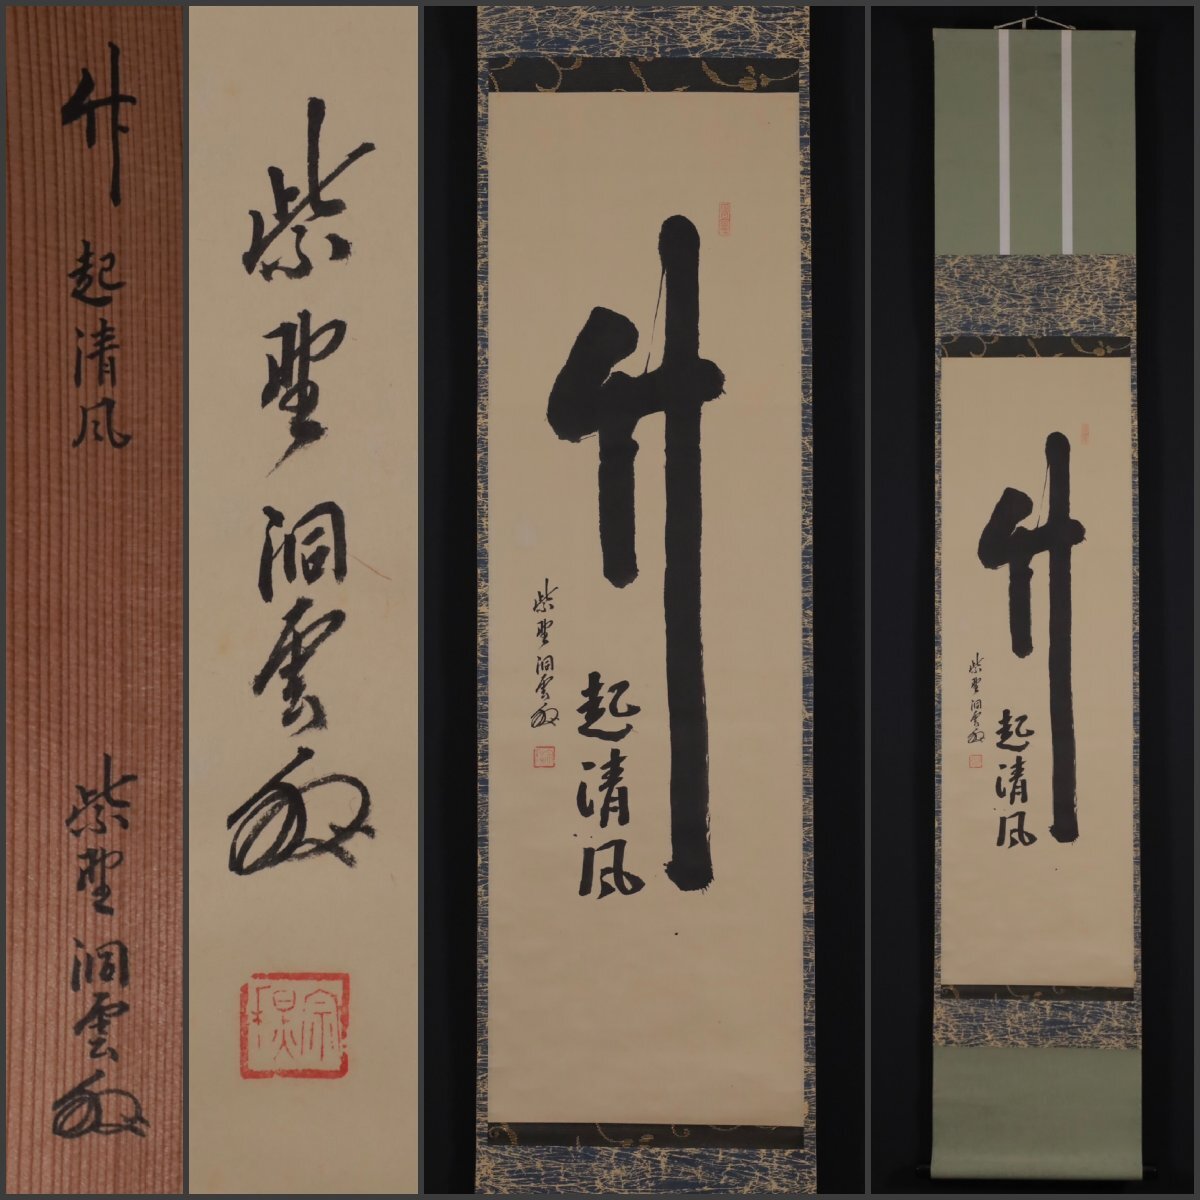 竹
起清風
紫野
洞雲
紫野
洞雲
竹
起清風
紫野
洞雲
竹
起清風
紫野
洞雲